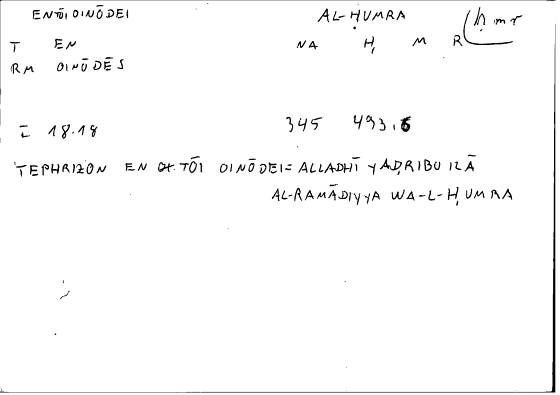 ENTŌI OINŌDEI AL-ḤUMRA ḥmr
T EN NA Ḥ M R
RM OINŌDĒS
18.18 345 493.6
TEPHRIZON EN TŌI OINŌDEI = ALLADHĪ YAḌRIBU ILĀ
AL-RAMĀDIYYA WA-L-ḤUMRA